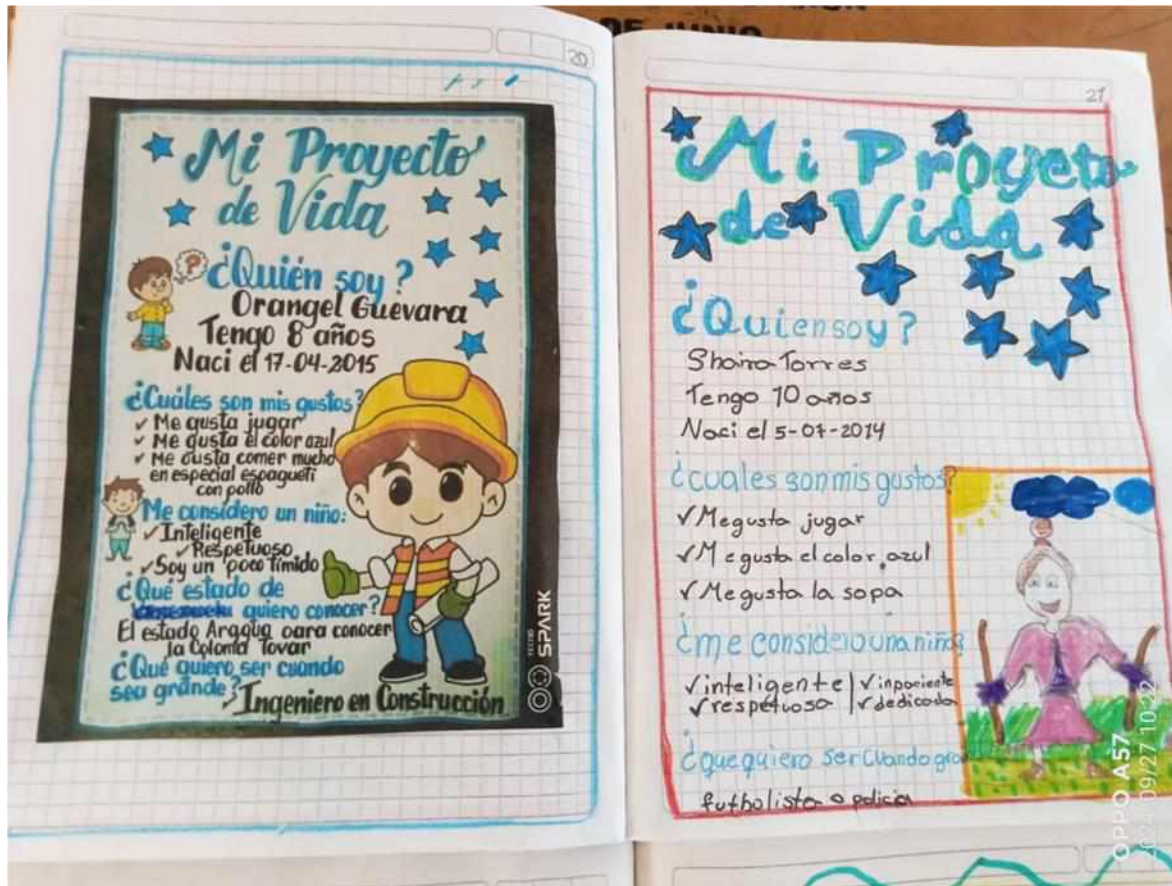 DE JUNIO
20
Mi Proyecto
de Vida
¿Quién soy?
Orangel Guevara
Tengo 8 años
Naci el 17-04-2015
¿Cuáles son mis gustos?
✓ Me gusta jugar
✓ Me gusta el color azul
✓ Me gusta comer mucho
en especial espagueti
con pollo
Me considero un niño:
✓ Inteligente
✓ Respetuoso
✓ Soy un poco tímido
¿Qué estado de
quiero conocer?
El estado Aragua para conocer
la Colonia Tovar
¿Qué quiero ser cuando
sea grande?
Ingeniero en Construcción
TECNO
SPARK
21
Mi Proyeto
de Vida
¿Quien soy?
Shaira Torres
Tengo 10 años
Naci el 5-01-2014
¿cuales son mis gustos?
✓ Me gusta jugar
✓ Me gusta el color azul
✓ Me gusta la sopa
¿me considero una niña?
✓ inteligente | ✓ inpaciente
✓ respetuosa | ✓ dedicada
¿que quiero ser cuando gra
futbolista o policia
OPPO A57
2024/09/27 10:22